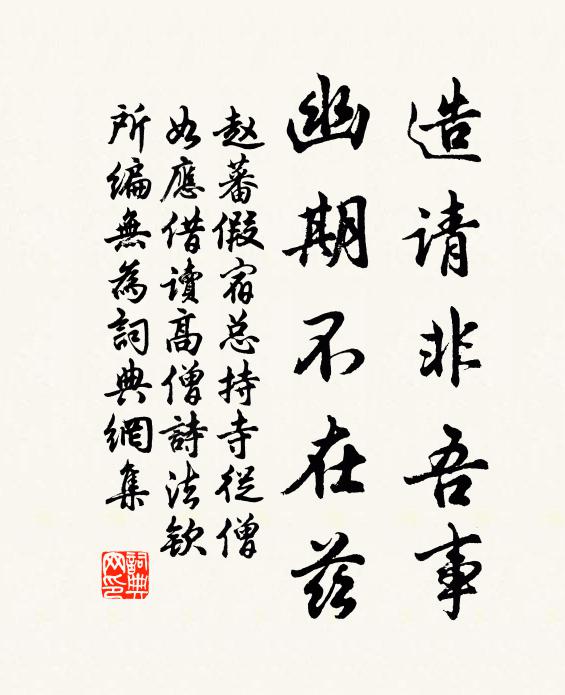 造请非吾事
幽期不在兹
赵蕃假宿总持寺从僧
如應借讀高僧詩法钦
所编無為詞典網集
詞典网印